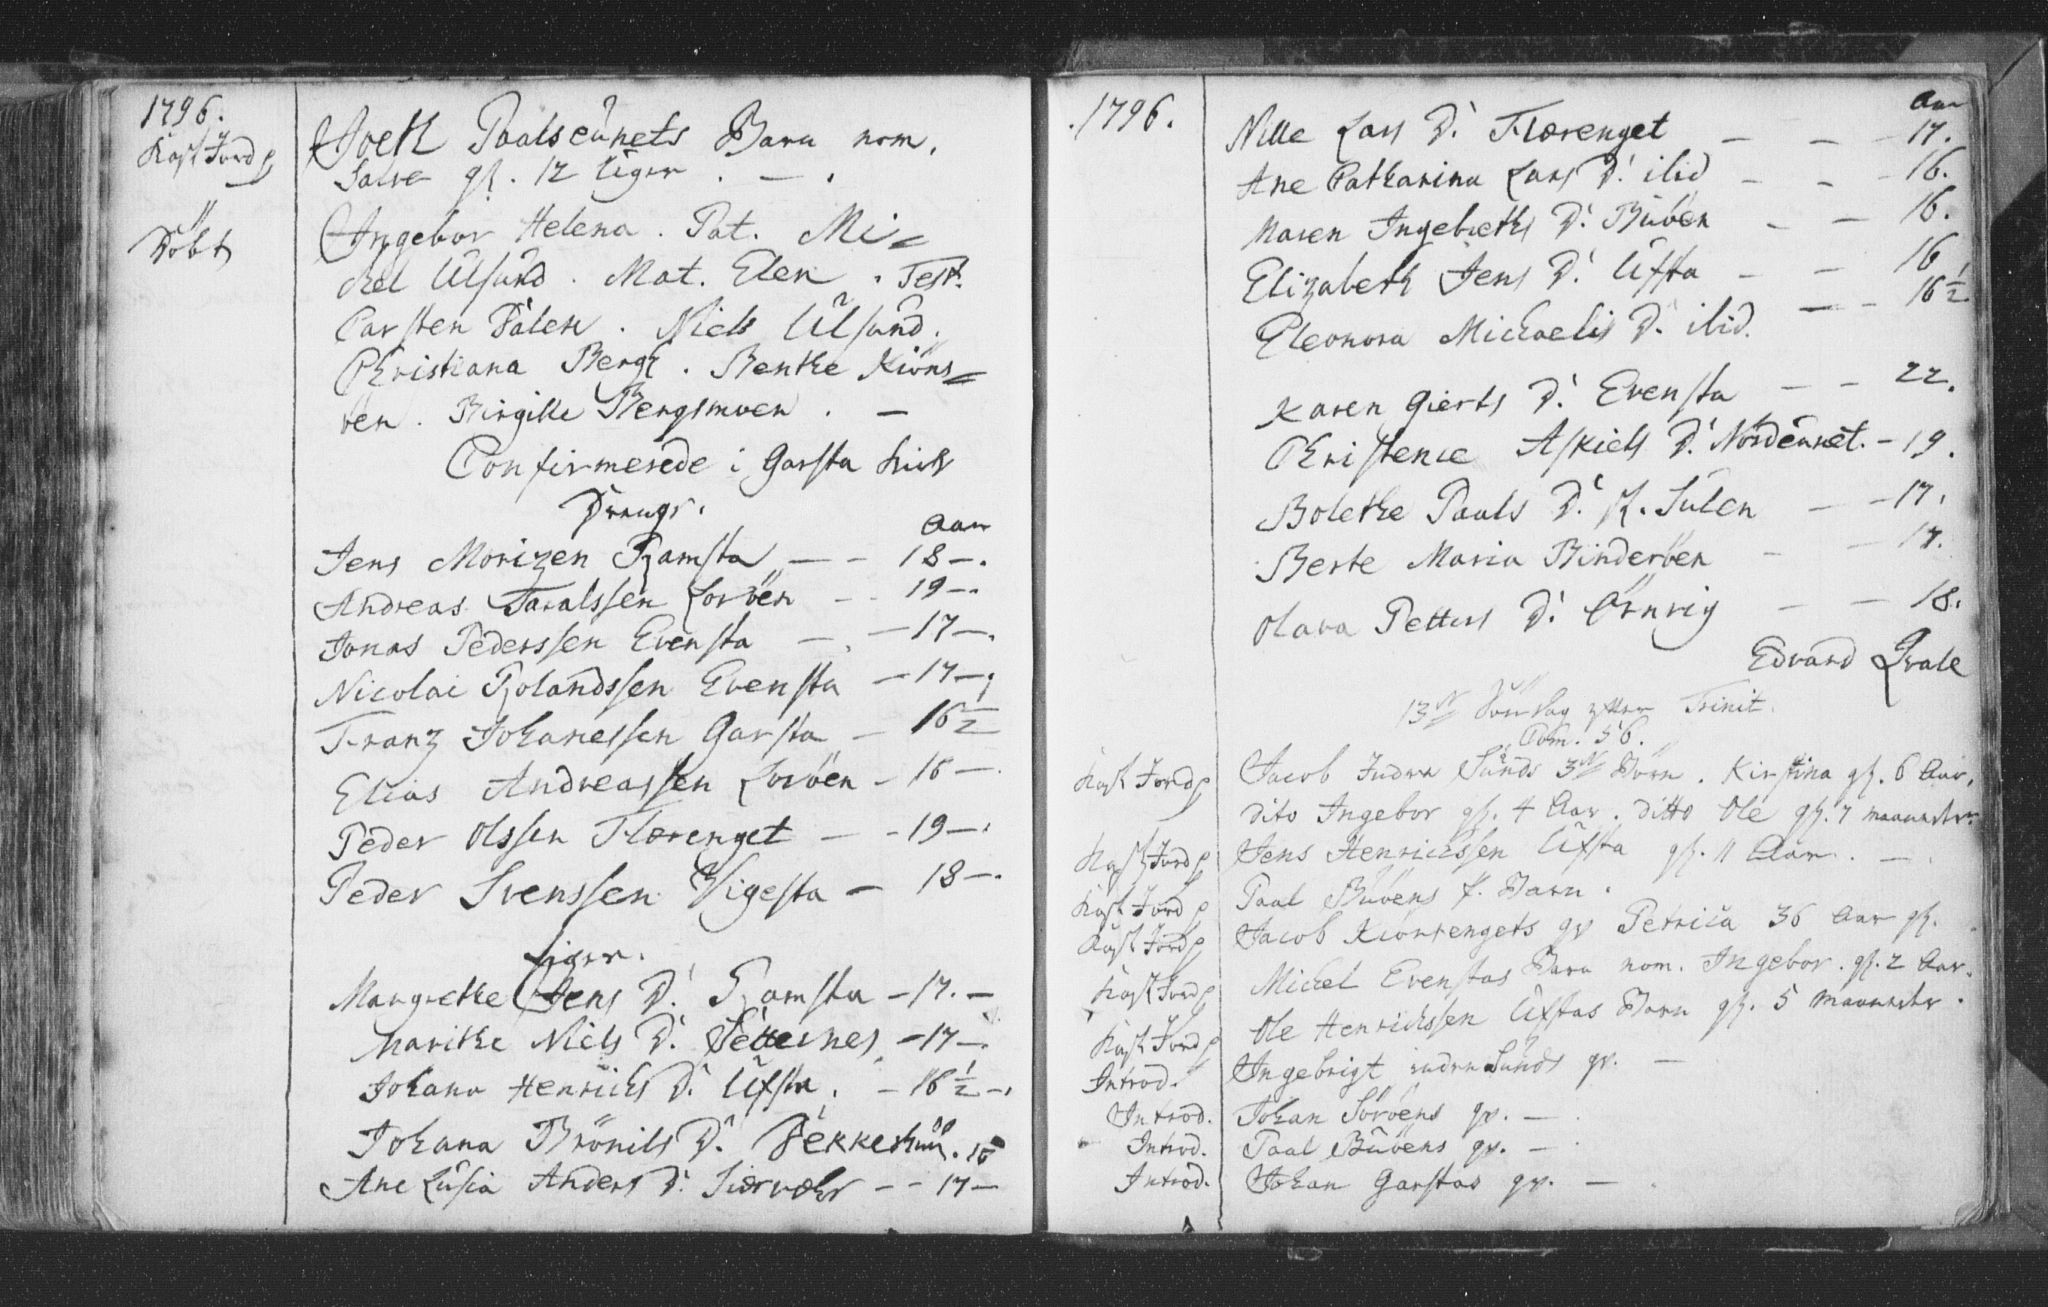 1796.
Kast Jord p
Joen Paalseünets Barn nom.
Salve gl. 12 Uger . — .
Döbt
Ingebor Helena . Pat. Mi=
chel Ulsünd . Mat. Elen . Test.
Carsten Dalen . Niels Ulsünd.
Christiana Bergh . Benthe Kiöns=
ven . Birgitte Bergsmoen . —
Confirmerede i Garsta Kirk
Drenge.
Aar
Jens Morizen Ramsta — – 18 –.
Andreas Taralssen Loröen – . 19 –.
Jonas Pederssen Evensta — . – 17 –.
Nicolai Rolandssen Evensta – 17 –.
Franz Johanessen Garsta – 16 ½
Elias Andreassen Loröen – 15 –.
Peder Olssen Flærenget – – 19 –.
Peder Svenssen Vigesta – 18 –.
Piger.
Margrethe Jens D. Ramsta – 17. –
Marithe Niels D. Setternes – 17 –.
Johana Henrichs D. Üfsta . – 16 ½ –.
Johana Brönils D. 15
Ane Lüsia Anders D. – – 17 –
1796.
Aar
Nille Lars D. Flærenget — – – 17.
Ane Catharina Lars D. ibid – – – 16.
Maren Ingebreths D. Büöen – – 16.
Elizabeth Jens D. Üfsta – – 16
Eleonora Michaelis D. ibid. — – 16 ½
Karen Gierts D. Evensta – – 22.
Christence Askiels D. Nordeünet. – 19.
Bolethe Paals D. St. Sülen — – 17.
Berte Maria Binderöen – – 17.
Olava Petters D. Örnvig – – 18.
Edvard Qvale
13de Söndag efter Trinit.
Kast Jord p Jacob Indre Sünds 3de Börn . Kirstina gl. 6 Aar.
dito Ingebor gl. 4 Aar . ditto Ole gl. 7 maaneder
Kast Jord p Jens Henrichssen Üfsta gl. 11 Aar . —
Kast Jord p Paal Büöens f. Barn .
Kast Jord p Jacob gv Petrica 36 Aar gl.
Kast Jord p Michel Evenstas Barn nom. Ingebor . gl. 2 Aar.
Kast Jord p Ole Henrichssen Üfstas Barn gl. 5 Maaneder .
Introd. Ingebrigt indre Sünds gv. —
Introd. Johan Soröens gv. —
Introd. Paal Büöens gv. —
Introd. Johan Garstas gv. — .